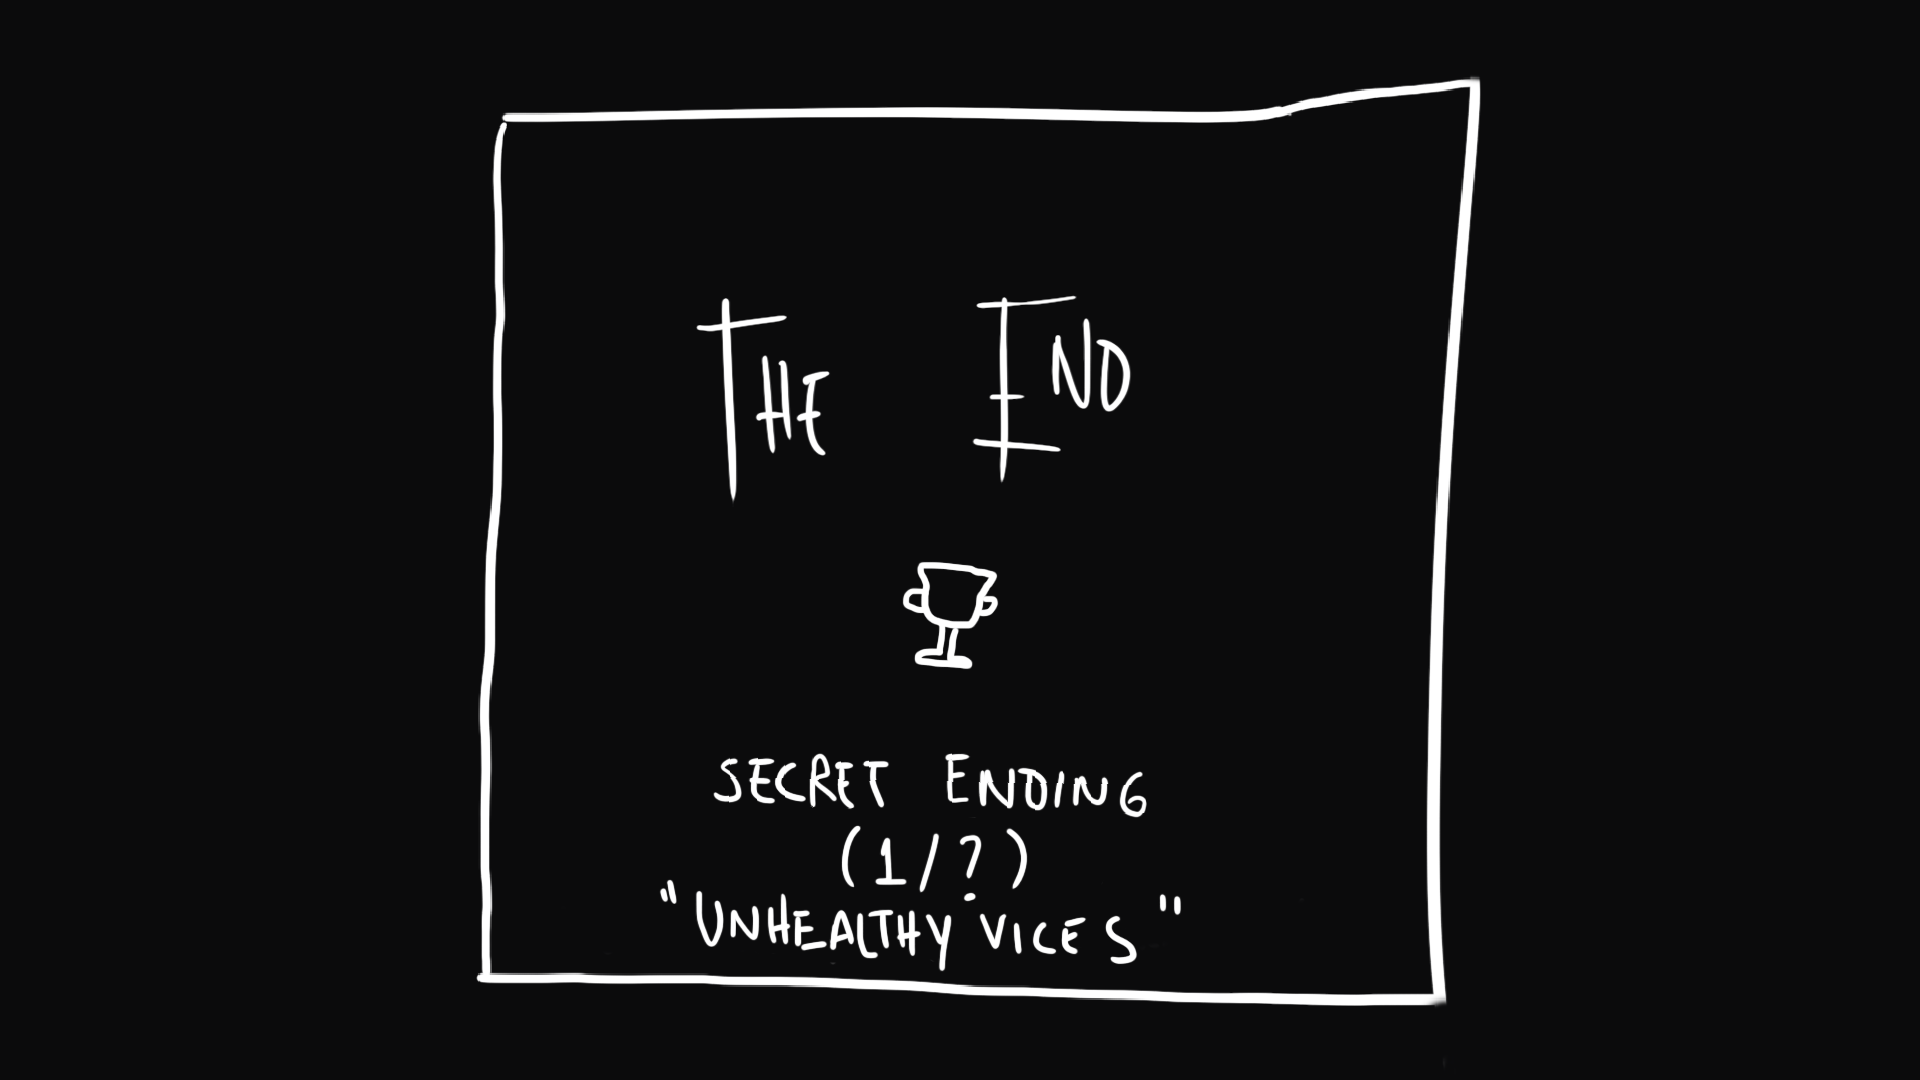 THE END
SECRET ENDING
(1/?)
"UNHEALTHY VICES"